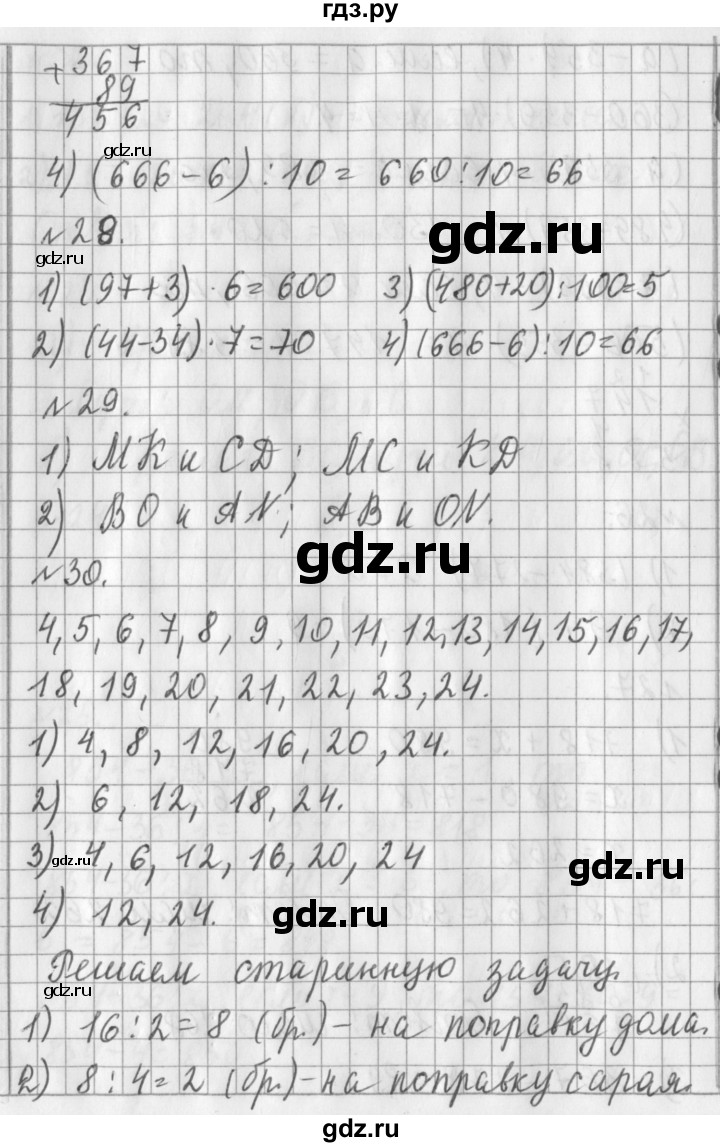 гдз.ру
+ 367
89
456
gdz.ru
4) (666-6):10= 660:10=66
№28.
gdz.ru
gdz.ru
1) (97+3)·6=600 3) (480+20):100=5
2) (44-34)·7=70 4) (666-6):10=66
№29.
1) МК и CD; МС и KD
2) ВО и AN; АВ и ON.
gdz.ru
№30.
4, 5, 6, 7, 8, 9, 10, 11, 12, 13, 14, 15, 16, 17,
18, 19, 20, 21, 22, 23, 24.
1) 4, 8, 12, 16, 20, 24.
2) 6, 12, 18, 24.
3) 4, 6, 12, 16, 20, 24
gdz.ru
gdz.ru
4) 12, 24.
gdz.ru
Решаем старинную задачу.
gdz.ru
1) 16:2=8 (бр.)- на поправку дома.
2) 8:4=2 (бр.)-на поправку сарая.